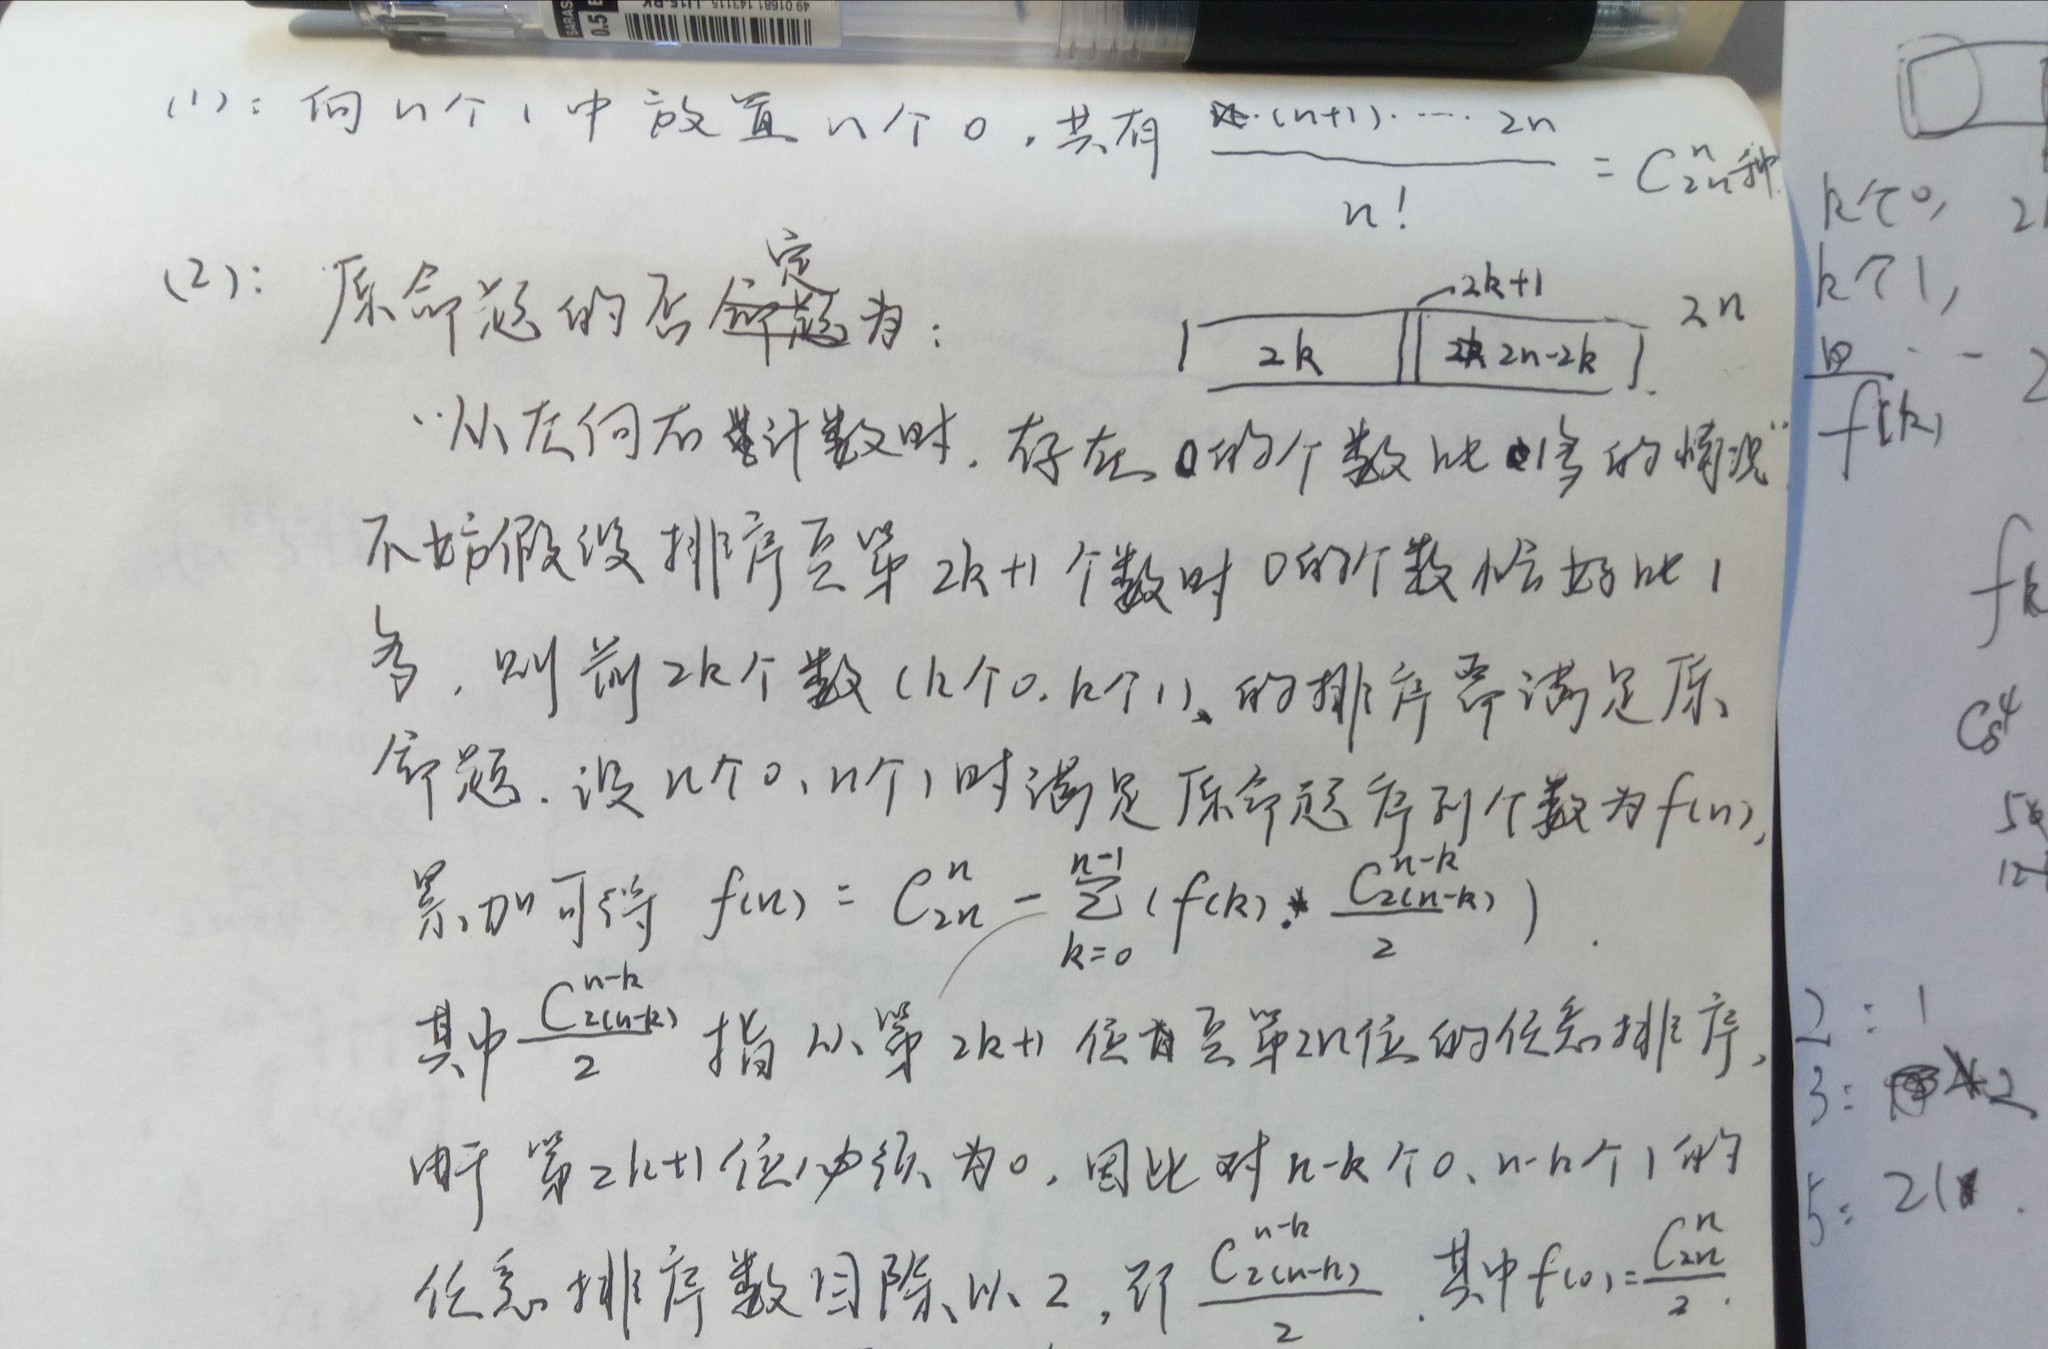 SARASA
0.5
49 01681 143115 JJ15-BK
(1): 向 n个1中放置 n个0，共有 (n+1)·…·2n / n! = C_{2n}^{n} 种.
(2): 原命题的否定为:
2k+1
2k
2n-2k
2n
"从左向右计数时，存在0的个数比1多的情况"
不妨假设排序至第 2k+1 个数时0的个数恰好比1
多，则前2k个数(k个0、k个1)的排序满足原
命题. 设n个0、n个1时满足原命题序列个数为f(n),
累加可得 f(n) = C_{2n}^{n} - \sum_{k=0}^{n-1} (f(k)· C_{2(n-k)}^{n-k} / 2).
其中 C_{2(n-k)}^{n-k} / 2 指从第2k+1位至第2n位的任意排序，
由于第2k+1位必须为0，因此对n-k个0、n-k个1的
任意排序数目除以2，即 C_{2(n-k)}^{n-k} / 2 . 其中f(0)= C_{2n}^{n} / 2.
k个0,
k个1,
f(k)
C_8^4
2: 1
3: 2